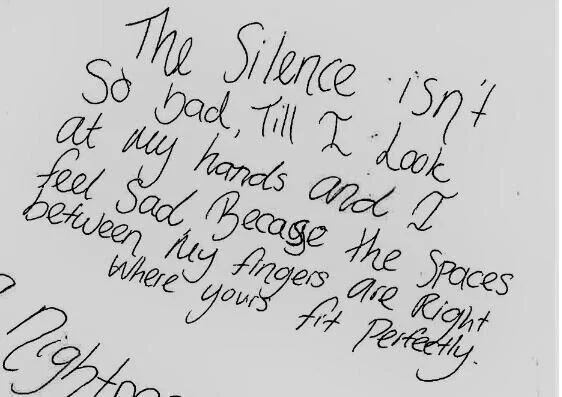 The Silence isn't
So bad, Till I Look
at my hands and I
feel Sad, Because the Spaces
between my fingers are Right
where yours fit Perfectly.